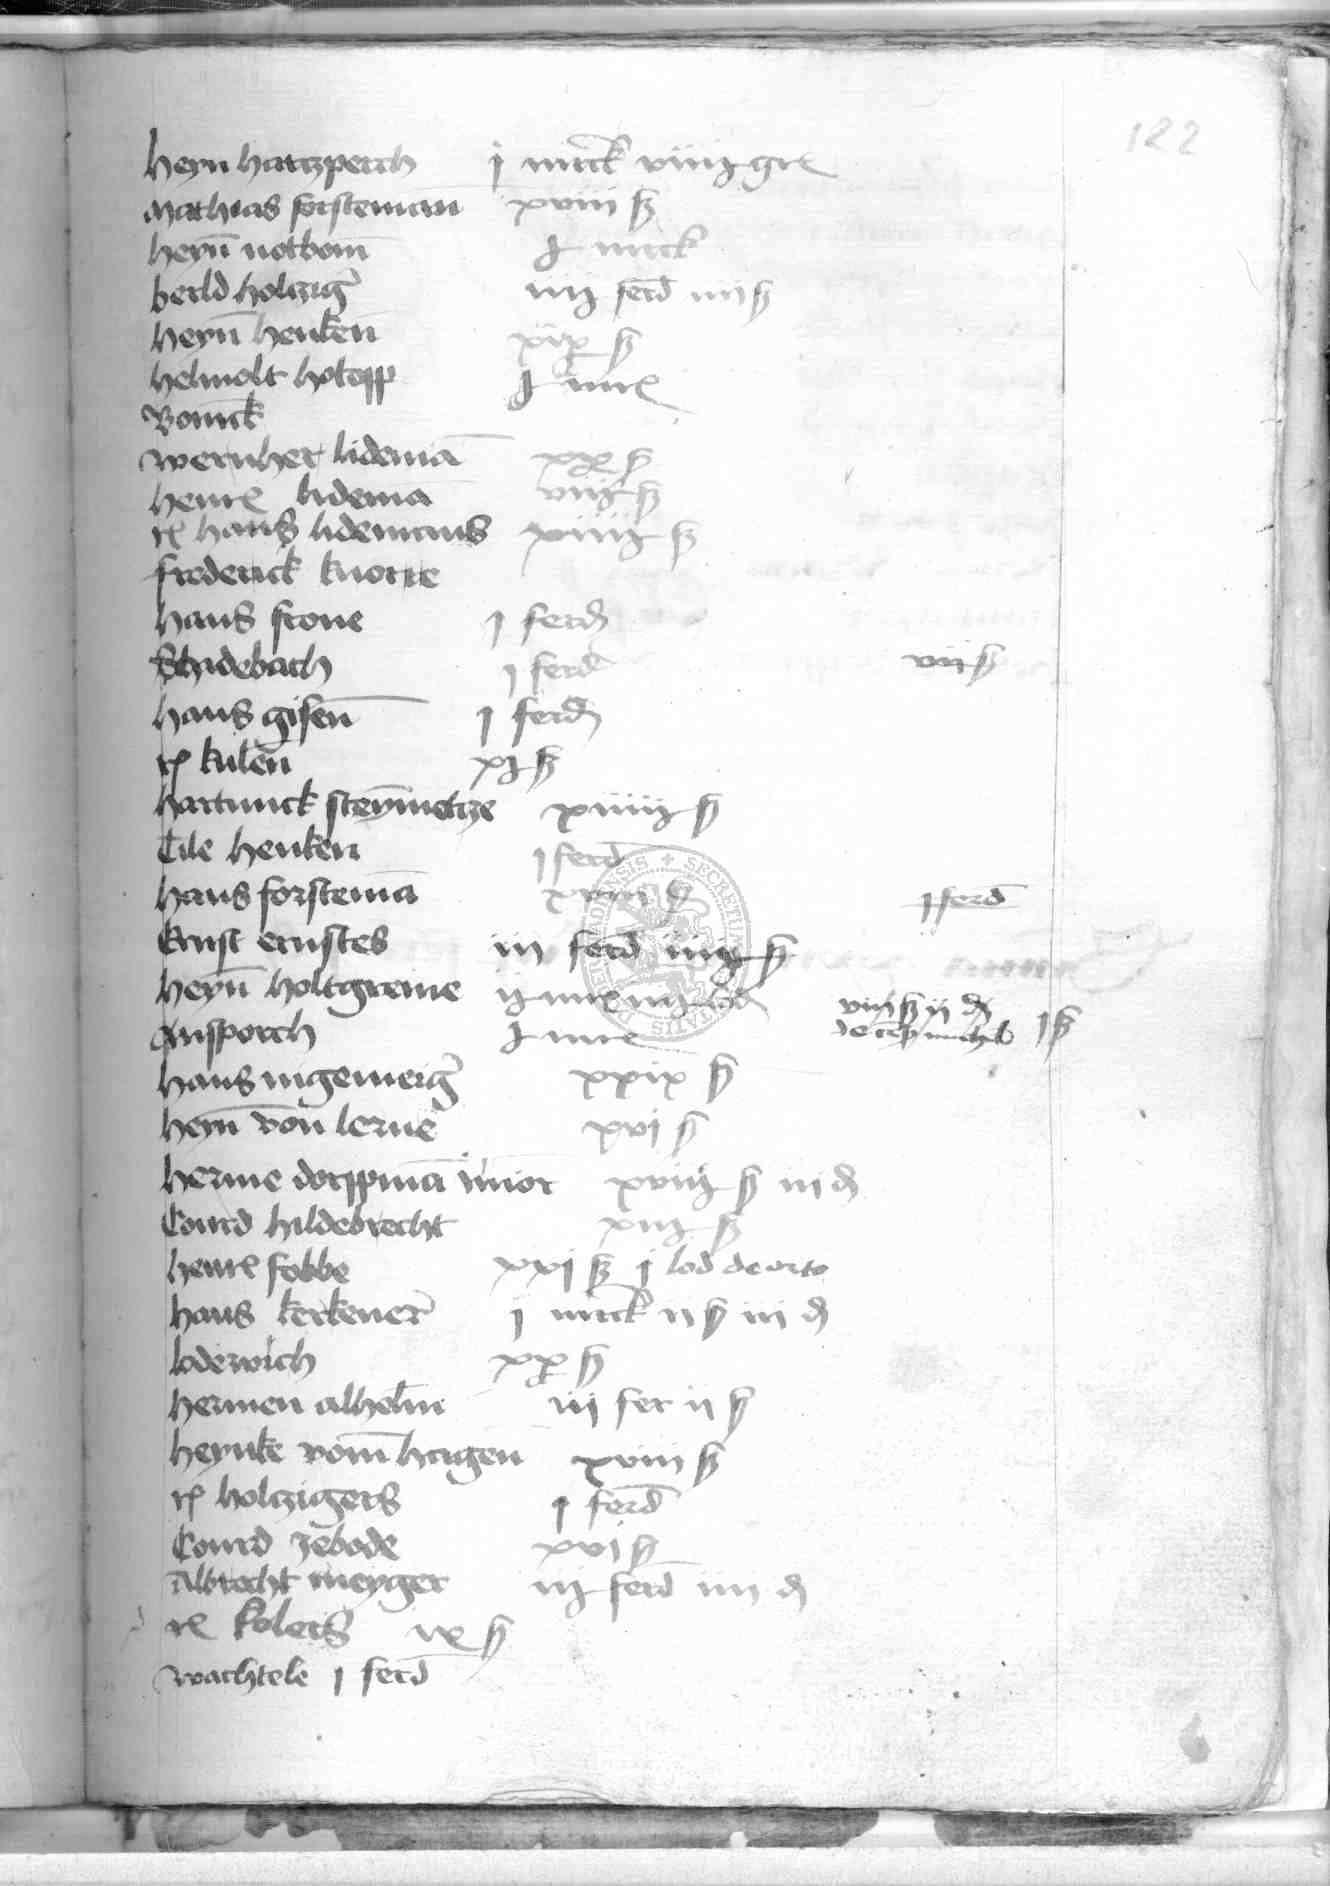 122
heyn hatczperch j mrck viiij gr
Mathias forsteman xviii ß
heyn notbom j mrck
berld holczig iiij ferd iiij ß
heyn henken xix ß
helmolt holtapp j mrc
Bomck
wernher lidema xx ß
henr lidema viij ß
rl hans lidemans xiiij ß
frederick knorre
hans stone j ferd
Schadebach j ferd vij ß
hans gisen j ferd
rl kulen xj ß
hartmck steymetze xiiij ß
Tile henken j ferd
hans forstema xviij ß j ferd
Ernst ernstes iii ferd iiij ß
heyn holtgreme ij mrc iij lod viij ß ij d
Ansporch j mrc de michel j ß
hans nigemeig xxix ß
heyn von lerne xvi ß
herme dorppma iunior xviij ß iii d
Conrd hildebrecht xiij ß
henr fobbe xxj ß j lod de orto
hans kerkener j mrck ij ß iii d
loderwich xx ß
hermen alhelm iij fer ij ß
heynke vom hagen xviii ß
rl holczigers j ferd
Conrd zebode xvi ß
Albrecht meyger iij ferd iiii d
rl kolers ix ß
wachtele j ferd